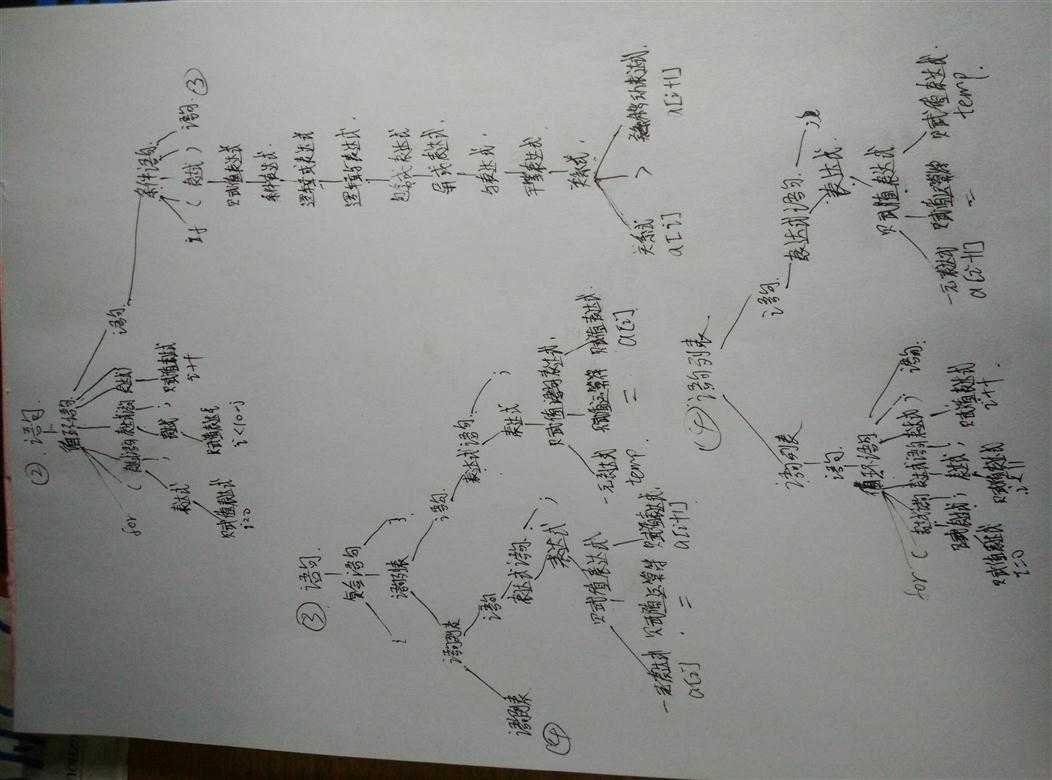 ② 语句
循环语句
for ( 表达式语句 表达式语句 表达式 ) 语句
表达式 ; 表达式 ; 赋值表达式
i++
赋值表达式 赋值表达式
i=0 i<10-j
条件语句
if ( 表达式 ) 语句 ③
赋值表达式
条件表达式
逻辑或表达式
逻辑与表达式
包含或表达式
异或表达式
与表达式
平等表达式
关系式
关系式 > 移动表达式
a[i] a[i+1]
③ 语句
复合语句
{ 语句列表 }
语句列表 语句
语句列表 语句 表达式语句
④ 表达式语句 表达式 ;
表达式 ; 赋值表达式
赋值表达式 一元表达式 赋值运算符 赋值表达式
temp = a[i]
一元表达式 赋值运算符 赋值表达式
a[i] = a[i+1]
④ 语句列表
语句列表 语句
语句 表达式语句
循环语句 表达式 ;
for ( 表达式语句 表达式语句 表达式 ) 语句
赋值表达式
表达式 ; 表达式 ; 赋值表达式
i++
赋值表达式 赋值表达式
i=0
一元表达式 赋值运算符 赋值表达式
a[i+1] = temp